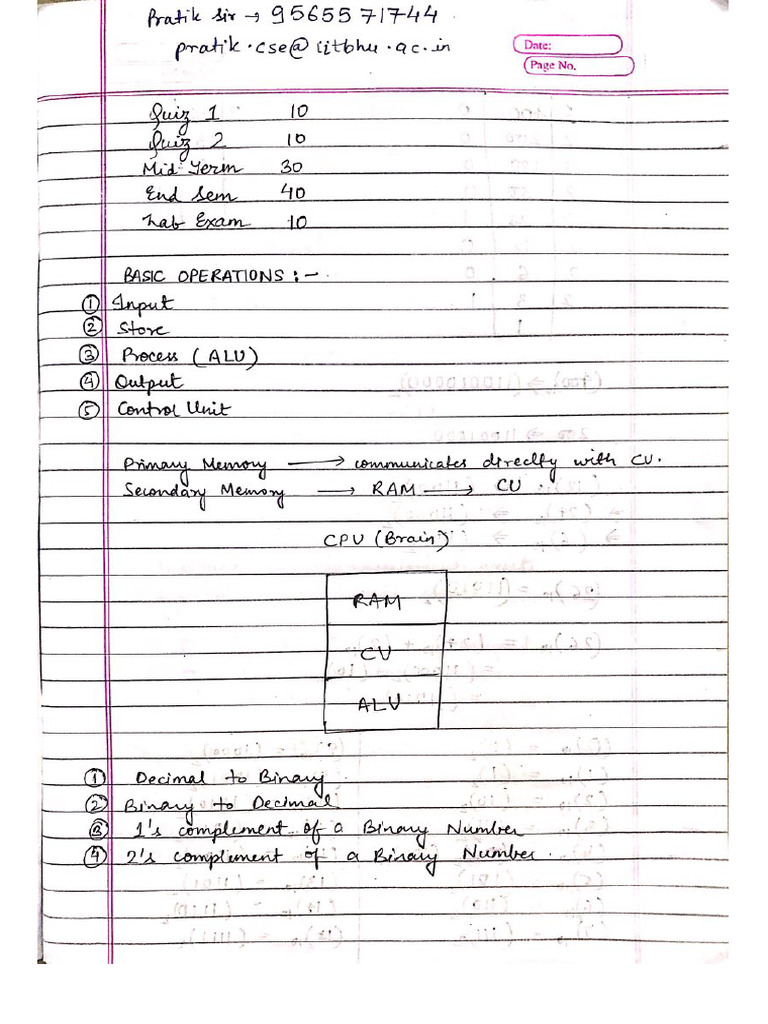 Pratik Sir → 9565571744
pratik.cse@iitbhu.ac.in
Date:
Page No.
Quiz 1 10
Quiz 2 10
Mid Term 30
End Sem 40
Lab Exam 10
BASIC OPERATIONS :-
① Input
② Store
③ Process (ALU)
④ Output
⑤ Control Unit
Primary Memory → communicates directly with CU.
Secondary Memory → RAM → CU.
CPU (Brain)
RAM
CU
ALU
① Decimal to Binary
② Binary to Decimal
③ 1's complement of a Binary Number
④ 2's complement of a Binary Number.